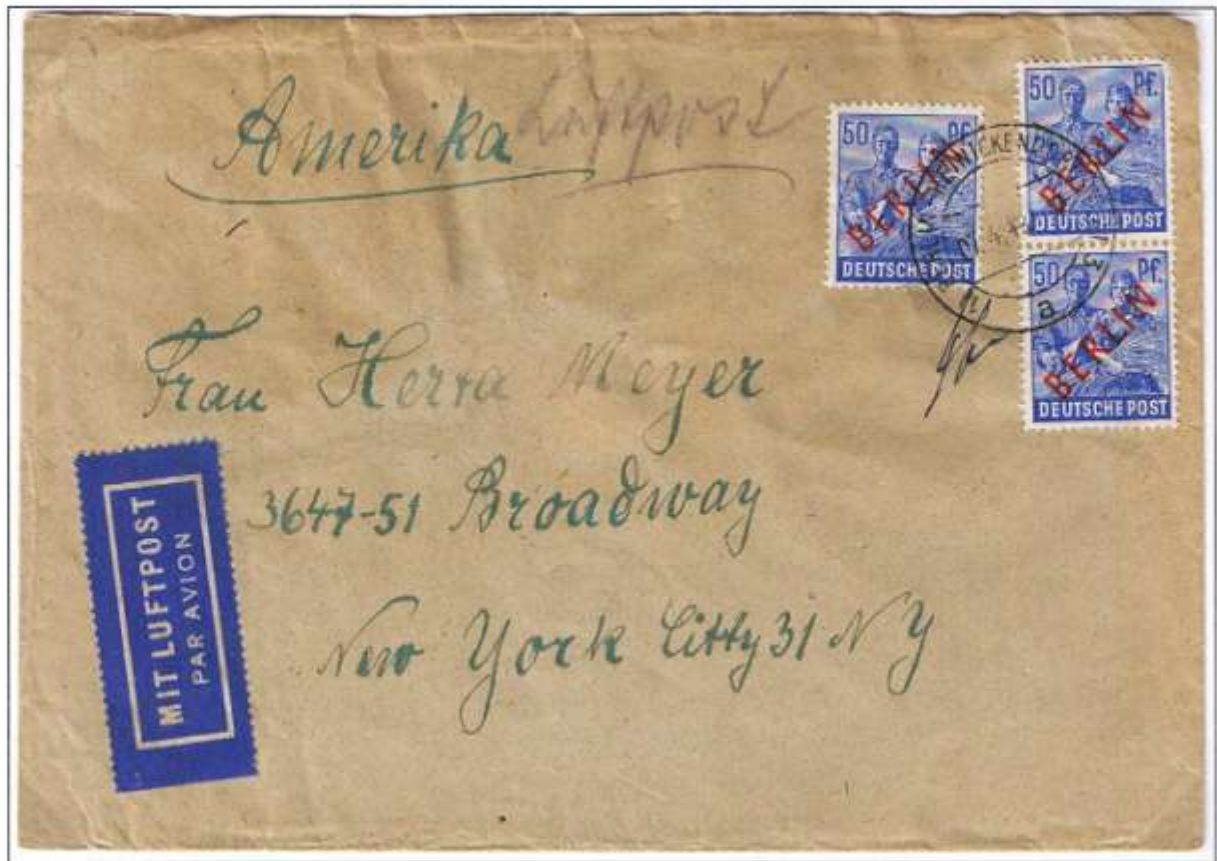 Amerika Luftpost
50 Pf.
BERLIN
DEUTSCHE POST
50 Pf.
BERLIN
DEUTSCHE POST
50 Pf.
BERLIN
DEUTSCHE POST
a
Frau Herra Meyer
3647-51 Broadway
New York Citty 31 NY
MIT LUFTPOST
PAR AVION